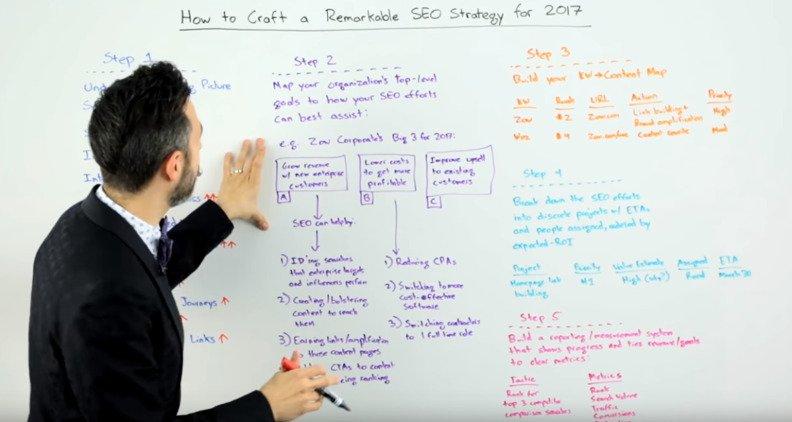 How to Craft a Remarkable SEO Strategy for 2017
Step 1
Picture
Journeys ↑
Links ↑
Step 2
Map your organization's top-level
goals to how your SEO efforts
can best assist:
e.g. Zow Corporate's Big 3 for 2017:
Grow revenue
w/ new enterprise
customers
A
Lower costs
to get more
profitable
B
Improve upsell
to existing
customers
C
SEO can help by:
1) ID'ing searches
that enterprise targets
and influencers perform
2) Creating/bolstering
content to reach
them
3) Earning links/amplification
these content pages
CTAs to content
ranking
1) Reducing CPAs
2) Switching to more
cost-effective
software
3) Switching contractors
to 1 full time role
Step 3
Build your KW→Content Map
KW Rank URL Action Priority
Zow #2 Zow.com Link building + High
Brand amplification
#4 Content rewrite Med
Step 4
Break down the SEO efforts
into discrete projects w/ ETAs
and people assigned, ordered by
expected-ROI
Project Priority Value Estimate Assigned ETA
Homepage link #1 High (why?) Rand March 30
building
Step 5
Build a reporting/measurement system
that shows progress and ties revenue/goals
to clear metrics
Tactic Metrics
Rank for Rank
top 3 Search Volume
comparison searches Traffic
Conversions